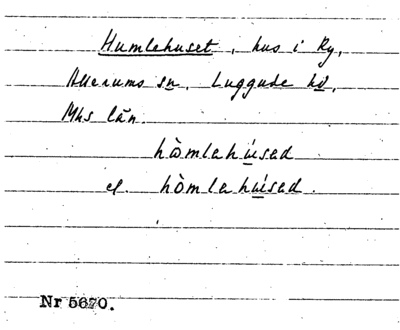 Humlehuset, hus i Ry,
Allerums sn, Luggude hd,
Mhs län.
hòmlahúsad
el. hòmlahúsad.
Nr 5670.